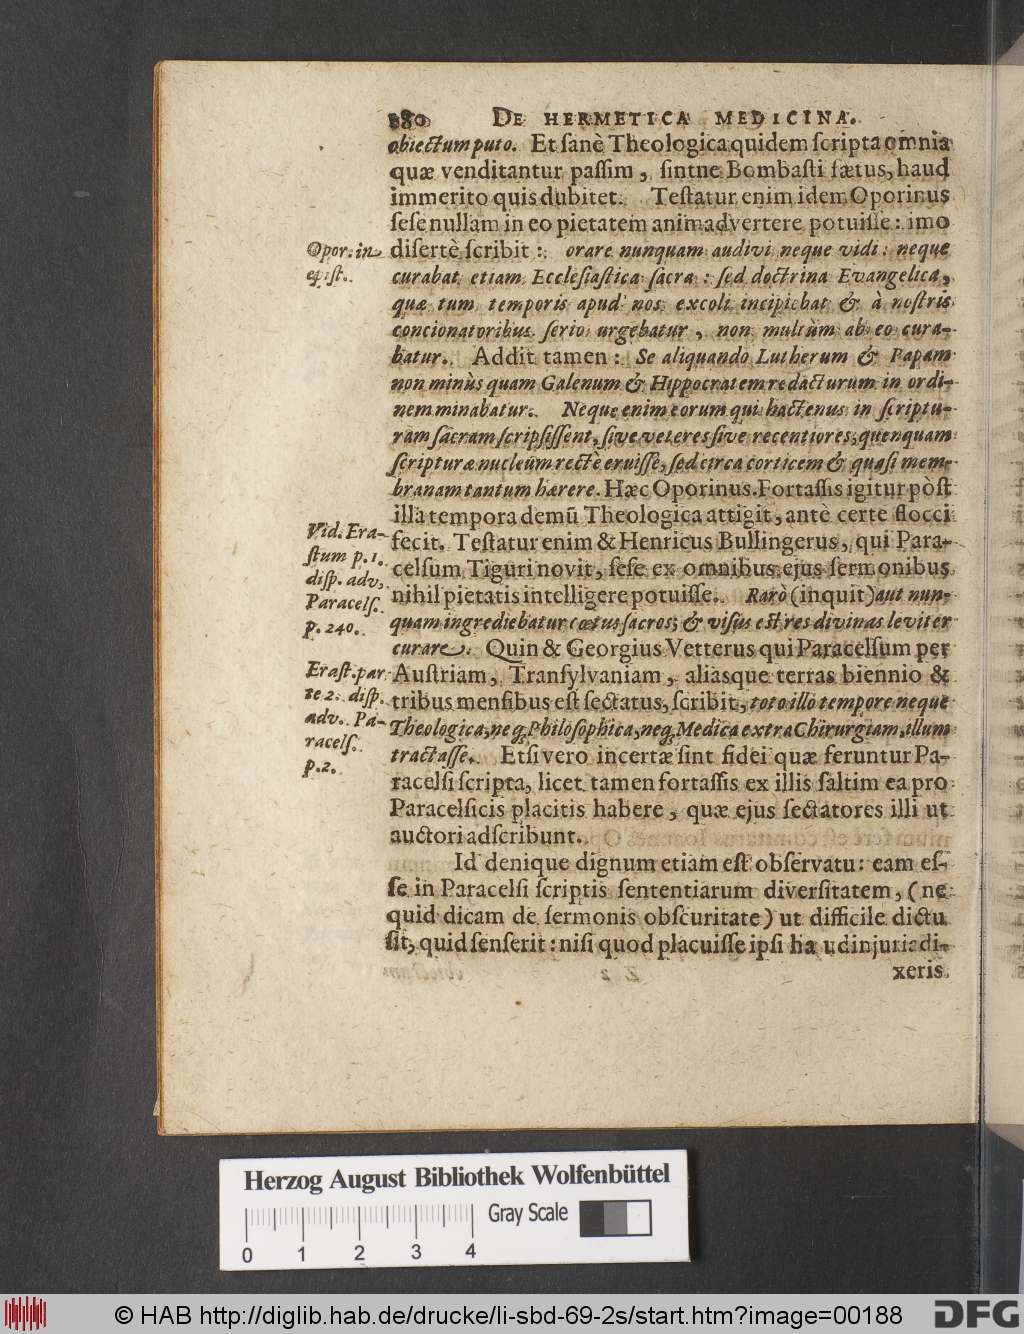 180 DE HERMETICA MEDICINA.
obiectum puto. Et sanè Theologica quidem scripta omnia
quæ venditantur passim, sintne Bombasti fætus, haud
immerito quis dubitet. Testatur enim idem Oporinus
sese nullam in eo pietatem animadvertere potuisse: imo
disertè scribit: orare nunquam audivi neque vidi: neque
curabat etiam Ecclesiastica sacra: sed doctrina Evangelica,
quæ tum temporis apud nos excoli incipiebat & à nostris
concionatoribus serio urgebatur, non multùm ab eo cura-
batur. Addit tamen: Se aliquando Lutherum & Papam
non minùs quam Galenum & Hippocratem redacturum in ordi-
nem minabatur. Neque enim eorum qui hactenus in scriptu-
ram sacram scripsissent, sive veteres sive recentiores, quenquam
scripturæ nucleum rectè eruisse, sed circa corticem & quasi mem-
branam tantum hærere. Hæc Oporinus. Fortassis igitur pòst
illa tempora demũ Theologica attigit, antè certe flocci
fecit. Testatur enim & Henricus Bullingerus, qui Para-
celsum Tiguri novit, sese ex omnibus ejus sermonibus
nihil pietatis intelligere potuisse. Rarò (inquit) aut nun-
quam ingrediebatur cœtus sacros; & visus est res divinas leviter
curare. Quin & Georgius Vetterus qui Paracelsum per
Austriam, Transylvaniam, aliasque terras biennio &
tribus mensibus est sectatus, scribit, toto illo tempore neque
Theologica, neq; Philosophica, neq; Medica extra Chirurgiam, illum
tractasse. Etsi vero incertæ sint fidei quæ feruntur Pa-
racelsi scripta, licet tamen fortassis ex illis saltim ea pro
Paracelsicis placitis habere, quæ ejus sectatores illi ut
auctori adscribunt.
Id denique dignum etiam est observatu: eam es-
se in Paracelsi scriptis sententiarum diversitatem, (ne
quid dicam de sermonis obscuritate) ut difficile dictu
sit, quid senserit: nisi quod placuisse ipsi haud injuria di-
xeris
Opor. in
epist.
Vid. Era-
stum p. 1.
disp. adv.
Paracels.
p. 240.
Erast. par
te 2. disp.
adv. Pa-
racels.
p. 2.
Herzog August Bibliothek Wolfenbüttel
Gray Scale
0 1 2 3 4
© HAB http://diglib.hab.de/drucke/li-sbd-69-2s/start.htm?image=00188
DFG